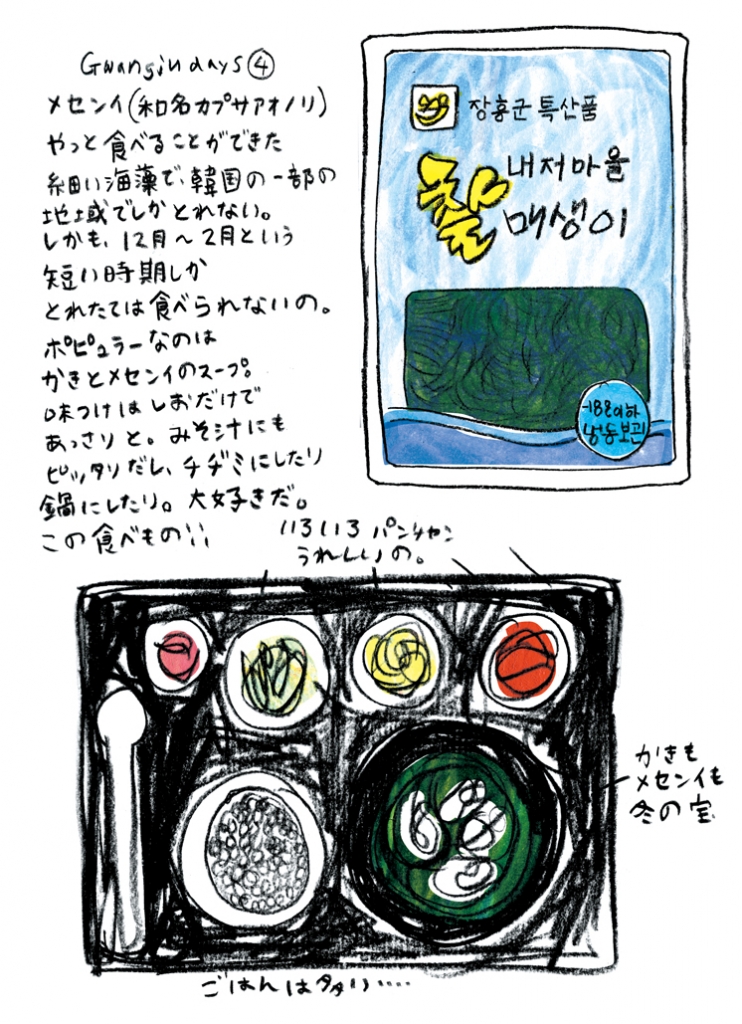 Gwangju days④
メセンイ(和名カプサアオノリ)
やっと食べることができた
細い海藻で、韓国の一部の
地域でしかとれない。
しかも、12月〜2月という
短い時期しか
とれたては食べられないの。
ポピュラーなのは
かきとメセンイのスープ。
味つけはしおだけで
あっさりと。みそ汁にも
ピッタリだし、チヂミにしたり
鍋にしたり。大好きだ。
この食べもの!!
장흥군 특산품
내저마을
매생이
-18℃이하
냉동보관
いろいろ パンチャン
うれしいの。
かきも
メセンイも
冬の宝
ごはんは多め····